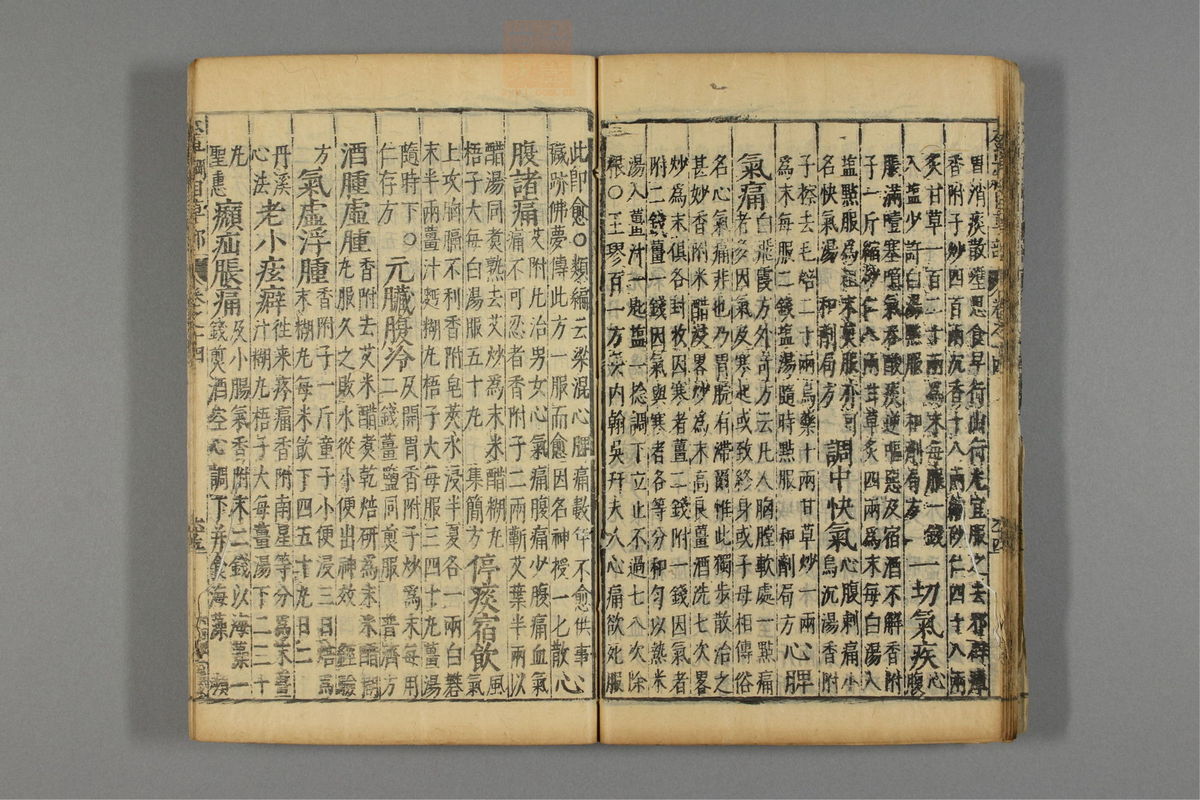 胃消痰散壅思食早行山行尤宜服之去邪辟瘴
香附子炒四百兩沉香十八兩縮砂仁四十八兩
炙甘草一百二十兩爲末每服一錢
入鹽少許白湯點服 和劑局方 一切氣疾心腹
脹滿噎塞噫氣吞酸痰逆嘔惡及宿酒不解香附
子一斤縮砂仁八兩甘草炙四兩爲末每白湯入
鹽點服爲粗末煎服亦可
名快氣湯 和劑局方 調中快氣心腹刺痛小烏沉湯香附
子擦去毛焙二十兩烏藥十兩甘草炒一兩
爲末每服二錢鹽湯隨時點服 和劑局方 心脾
氣痛白飛霞方外奇方云凡人胸膛軟處一點痛
者多因氣及寒起或致終身或子母相傳俗
名心氣痛非也乃胃脘有滯爾惟此獨步散治之
甚妙香附米醋浸畧炒爲末高良薑酒洗七次畧
炒爲末俱各封收因寒者薑二錢附一錢因氣者
附二錢薑一錢因氣與寒者各等分和勻以熱米
湯入薑汁一匙鹽一捻調下立止不過七八次除
根○王璆百一方云内翰吳幵夫人心痛欲死服
此即愈○類編云梁混心脾痛數年不愈供事
穢跡佛夢傳此方一服而愈因名神授一匕散 心
腹諸痛艾附丸治男女心氣痛腹痛少腹痛血氣
痛不可忍者香附子二兩蘄艾葉半兩以
醋湯同煮熟去艾炒爲末米醋糊丸
梧子大每白湯服五十丸 集簡方 停痰宿飲風氣
上攻胸膈不利香附皂莢水浸半夏各一兩白礬
末半兩薑汁麪糊丸梧子大每服三四十丸薑湯
隨時下 仁存方 ○元臟腹冷及開胃香附子炒爲末每用
二錢薑鹽同煎服 普濟方
酒腫虛腫香附去皮米醋煮乾焙研爲末米醋糊
丸服久之敗水從小便出神效 經驗
方 氣虛浮腫香附子一斤童子小便浸三日焙爲
末糊丸每米飲下四五十丸日二
丹溪心法 老小痃癖往來疼痛香附南星等分爲末薑
汁糊丸梧子大每薑湯下二三十
丸 聖惠 㿗疝脹痛及小腸氣香附末二錢以海藻一
錢煎酒空心調下并食海藻 瀕